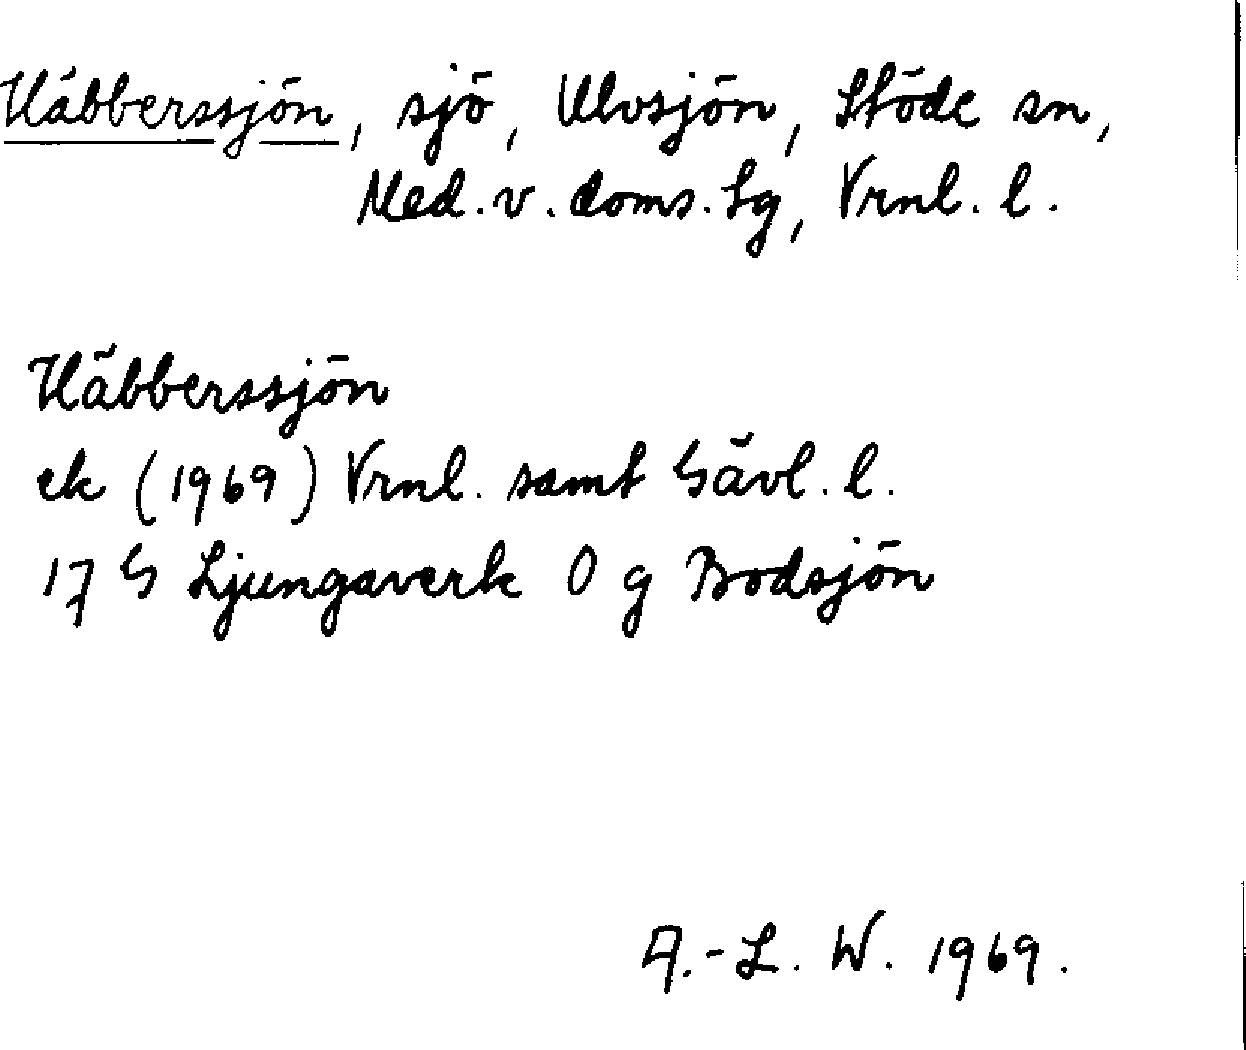 Häbberssjön, sjö, Ulvsjön, Stöde sn,
Med. v. doms. tg, Vrnl. l.
Häbberssjön
ek (1969) Vrnl. samt Gävl. l.
17 G Ljungaverk 0 g Bodsjön
A.-L. W. 1969.